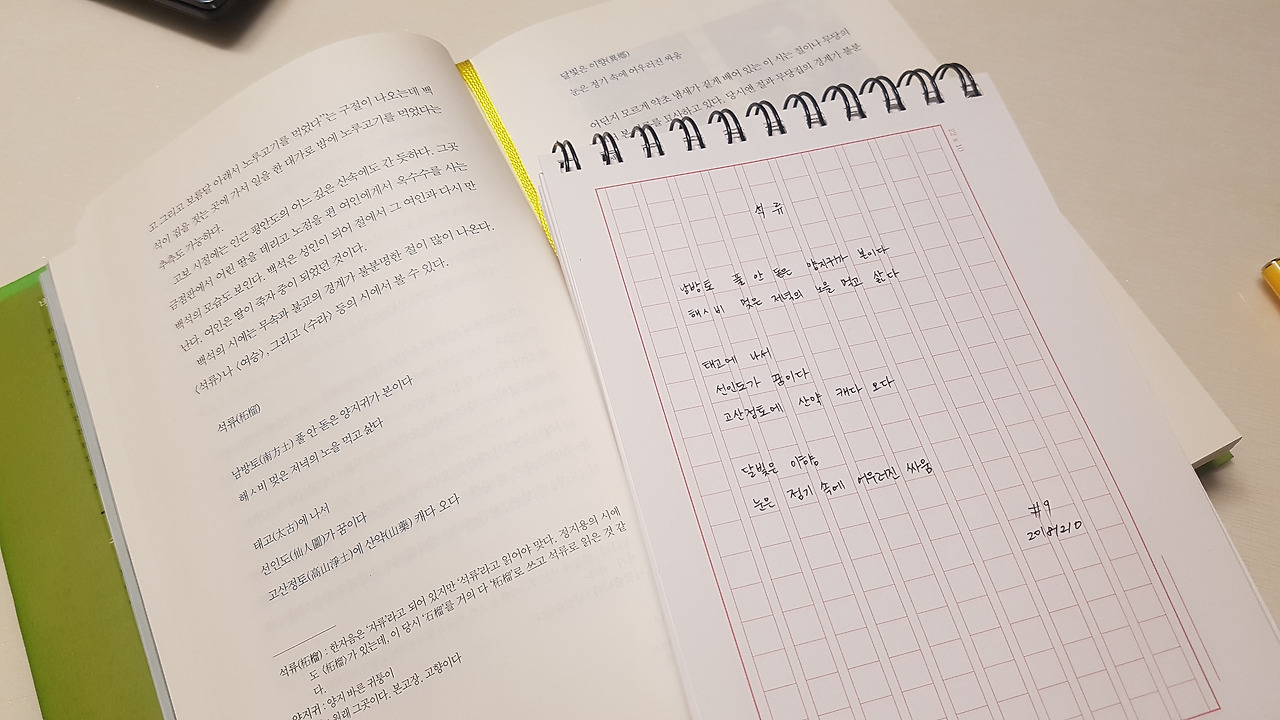 고, 그리고 보름달 아래서 노루고기를 먹었다”는 구절이 나오는데 백
석이 집을 짓는 곳에 가서 일을 한 대가로 밤에 노루고기를 먹었다는
추측도 가능하다.
고보 시절에는 인근 평안도의 어느 깊은 산속에도 간 듯하다. 그곳
금점판에서 어린 딸을 데리고 노점을 편 여인에게서 옥수수를 사는
백석의 모습도 보인다. 백석은 성인이 되어 절에서 그 여인과 다시 만
난다. 여인은 딸이 죽자 중이 되었던 것이다.
백석의 시에는 무속과 불교의 경계가 불분명한 점이 많이 나온다.
〈석류〉나 〈여승〉, 그리고 〈수라〉 등의 시에서 볼 수 있다.
석류(柘榴)
남방토(南方土) 풀 안 돋은 양지귀가 본이다
해ㅅ비 멎은 저녁의 노을 먹고 삶다
태고(太古)에 나서
선인도(仙人圖)가 꿈이다
고산정토(高山淨土)에 산약(山藥) 캐다 오다
석류(柘榴) : 한자음은 ‘자류’라고 되어 있지만 ‘석류’라고 읽어야 맞다. 정지용의 시에
도 〈柘榴〉가 있는데, 이 당시 ‘石榴’를 거의 다 ‘柘榴’로 쓰고 석류로 읽은 것 같
다.
양지귀 : 양지 바른 귀퉁이
원래 그곳이다. 본고장, 고향이다
달빛은 이향(異鄕)
눈은 정기 속에 어우러진 싸움
어딘지 모르게 약초 냄새가 짙게 배어 있는 이 시는 절이나 무당의
묘사하고 있다. 당시엔 절과 무당집의 경계가 불분
22 x 10
석류
남방토 풀 안 돋은 양지귀가 본이다
해ㅅ비 멎은 저녁의 노을 먹고 삶다
태고에 나서
선인도가 꿈이다
고산정토에 산약 캐다 오다
달빛은 이향
눈은 정기 속에 어우러진 싸움
#9
20181210